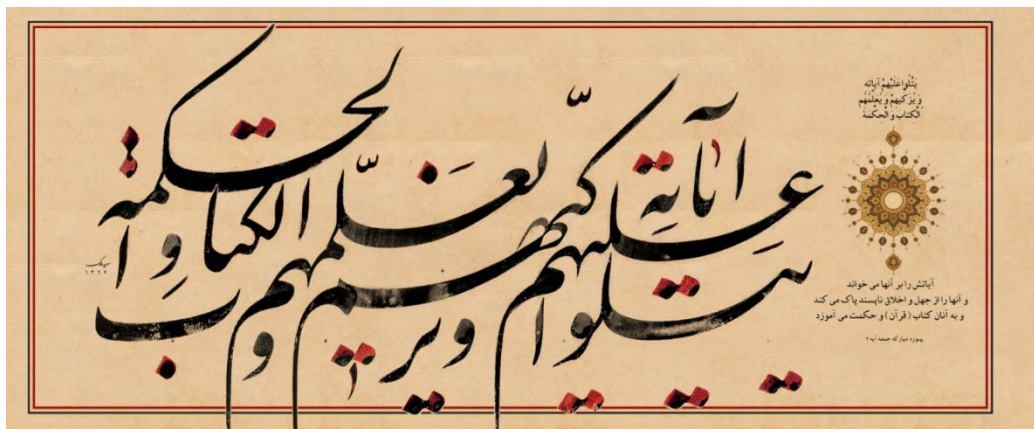 يتلوا عليهم آياته ويزكيهم ويعلمهم الكتاب والحكمة
يَتْلُوا عَلَيْهِمْ آيَاتِهِ
وَ يُزَكِّيهِمْ وَ يُعَلِّمُهُمُ
الْكِتَابَ وَ الْحِكْمَةَ
آیاتش را بر آنها می خواند
و آنها را از جهل و اخلاق ناپسند پاک می کند
و به آنان کتاب ( قرآن ) و حکمت می آموزد
سوره مبارکه جمعه آیه ۲